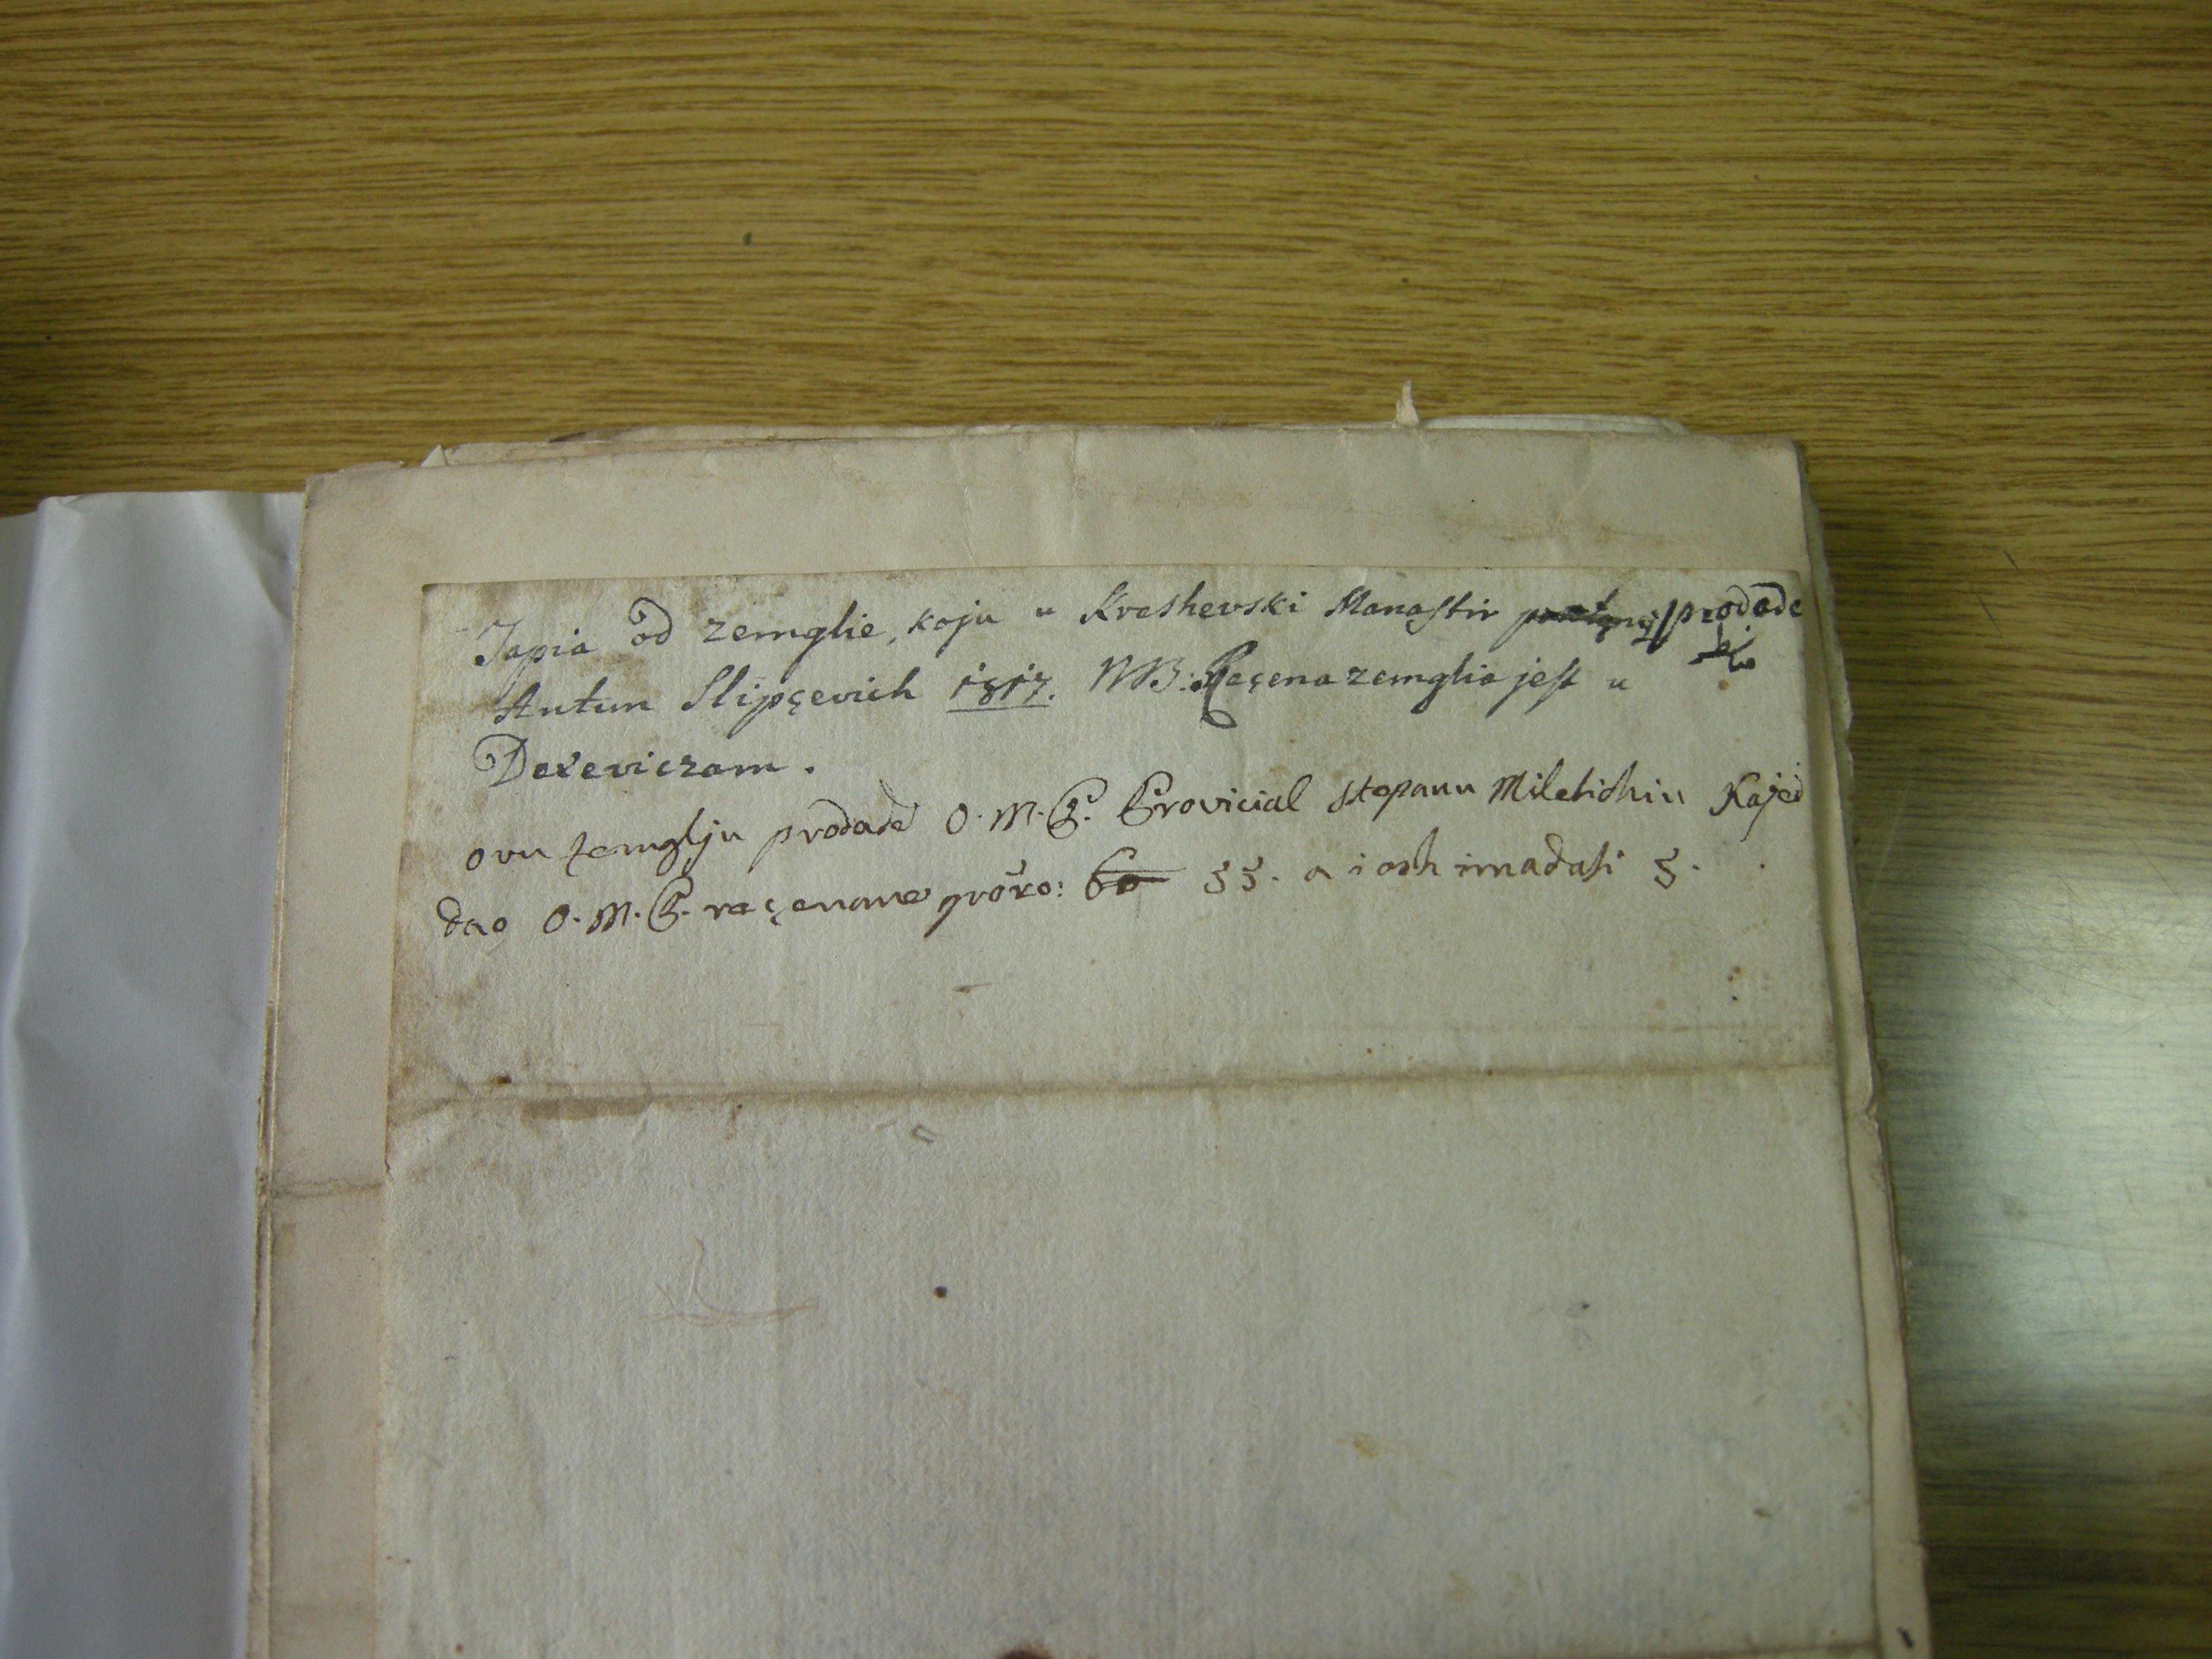 Tapia od zemglie, koju u Kreshevski Manastir prodade
Antun Slipçevich 1817. NB: Reçena zemglia jest u
Dexeviczam.
ovu zemglju prodade O. M. P. Provicial Stopanu Miletichiu Kaje
dao O. M. P. reçenome groxo: 60 55. a iosh imadati 5.